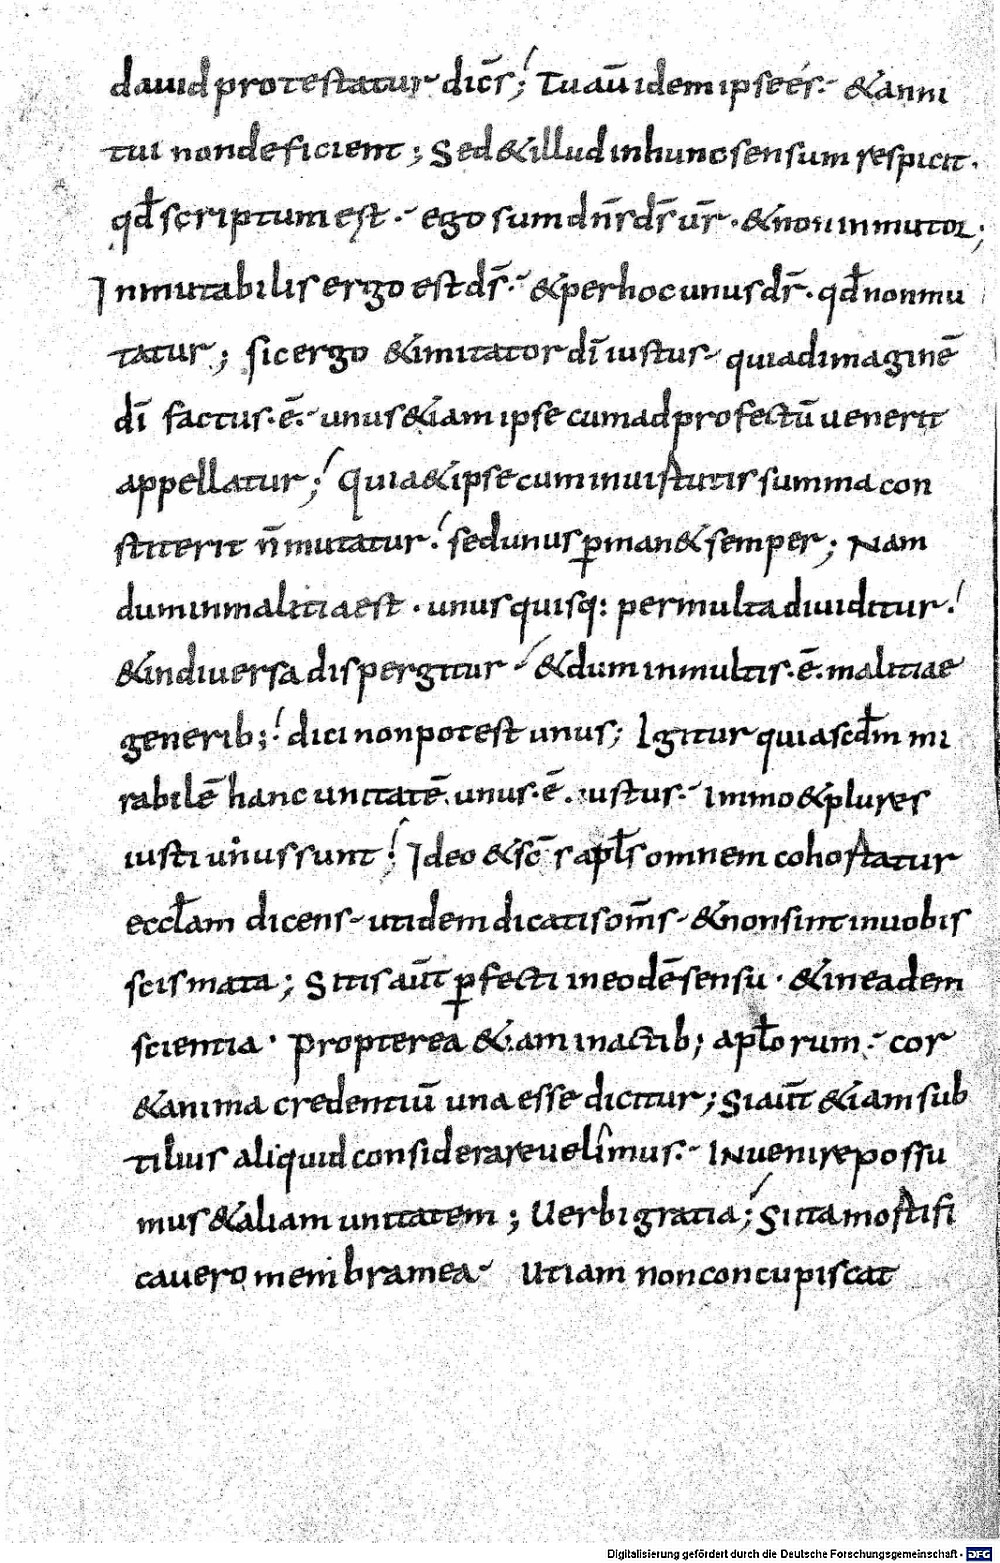 dauid protestatur dic̄s; Tu aū idem ipse es. & anni
tui non deficient; Sed & illud in hunc sensum respicit.
qd̄ scriptum est. ego sum dn̄s ds̄ ur̄. & non inmutor;
Inmutabilis ergo est ds̄. & per hoc unus ds̄. qd̄ non mu
tatur; sic ergo & imitator dī iustus qui ad imaginē
dī factus. ē. unus & iam ipse cum ad profectū uenerit
appellatur; Quia & ipse cum in uirtutis summa con
stiterit n̄ mutatur. sed unus ꝑman& semper; Nam
dum in malitia est. unus quisq: per multa diuiditur.
& in diuersa dispergitur & dum in multis. ē. malitiae
generib; dici non potest unus; Igitur quia scd̄m mi
rabilē hanc unitatē. unus. ē. iustus. Immo & plures
iusti unus sunt; Ideo & sc̄s apl̄s omnem cohortatur
eccl̄am dicens ut idem dicatis om̄s & non sint in uobis
scismata; Sitis aūt ꝑfecti in eodē sensu. & in eadem
scientia. Propterea & iam in actib; apl̄orum. cor
& anima credentiū una esse dicitur; Si aūt & iam sub
tilius aliquid considerare uelimus. Inuenire possu
mus & aliam unitatem; Uerbi gratia; Si ita mortifi
cauero membra mea Ut iam non concupiscat
Digitalisierung gefördert durch die Deutsche Forschungsgemeinschaft - DFG